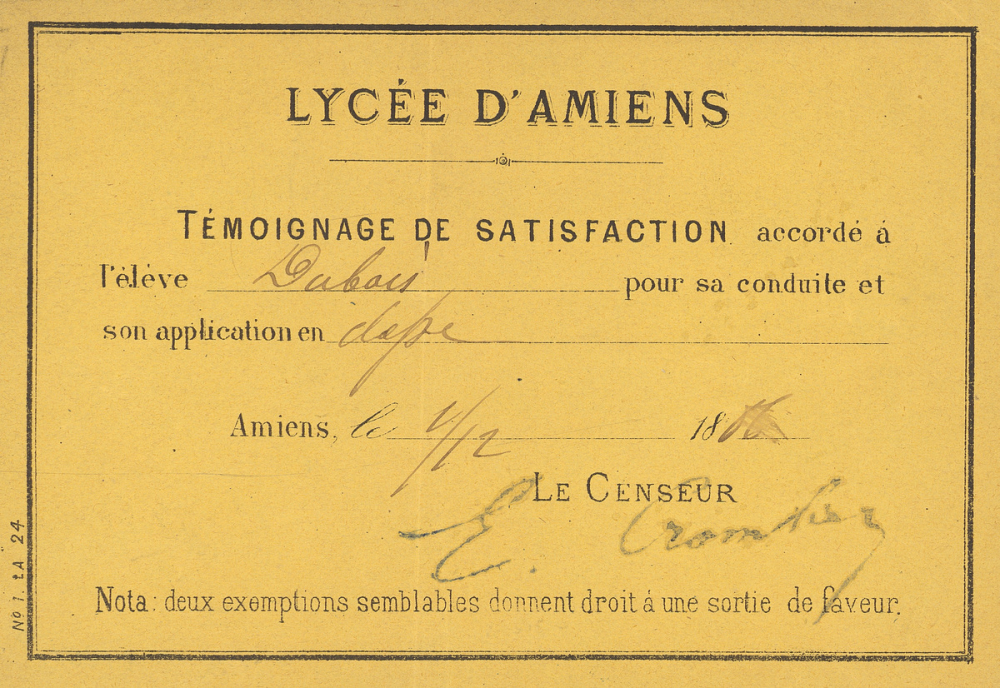 LYCÉE D'AMIENS
TÉMOIGNAGE DE SATISFACTION accordé á
l'éléve Dubois pour sa conduite et
son application en classe
Amiens, le 4/12 18
LE CENSEUR
E. Crombez
Nota: deux exemptions semblables donnent droit á une sortie de faveur.
No 1. LA 24